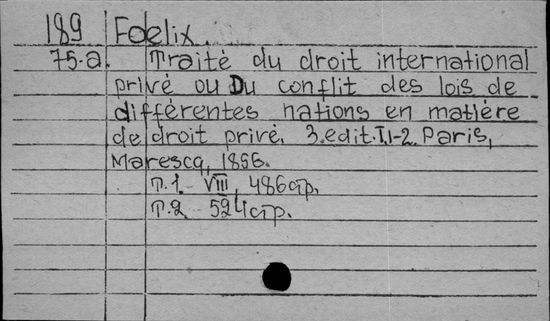 189 Foelix.
75-a. Traité du droit international
privé ou Du conflit des lois de
différentes nations en matière
de droit privé. 3.edit.T.1-2. Paris,
Marescq, 1856.
т.1. VIII, 486стр.
т.2 524стр.